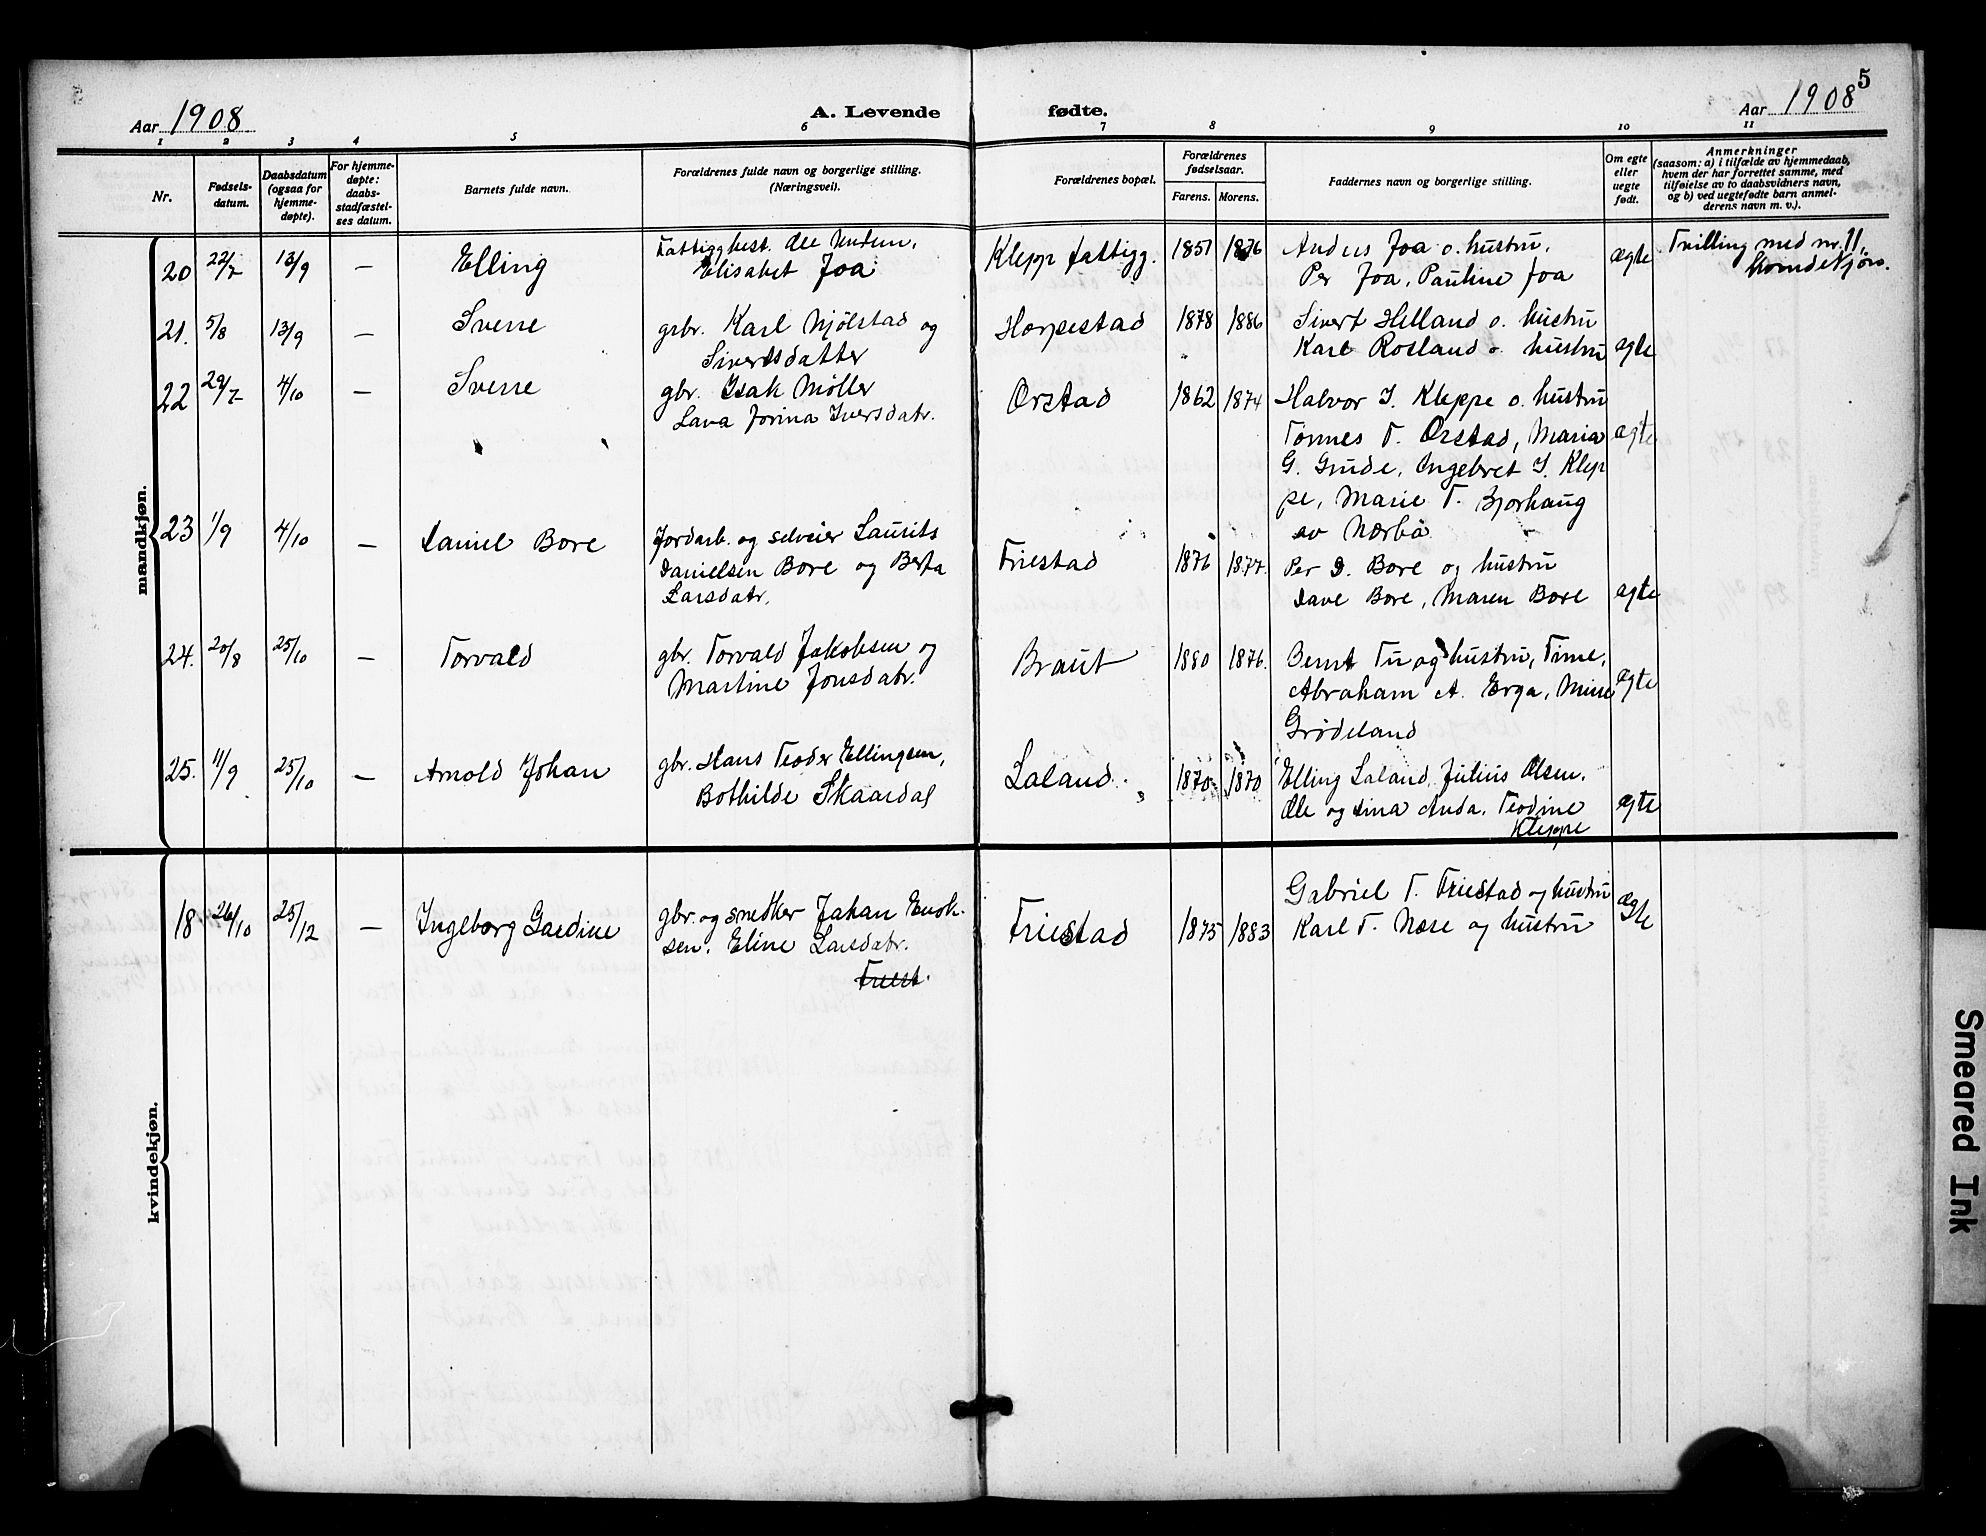 5
Aar 1908
A. Levende fødte.
Aar 1908
1 2 3 4 5 6 7 8 9 10 11
Nr.
Fødsels-
datum.
Daabsdatum
(ogsaa for
hjemme-
døpte).
For hjemme-
døpte:
daabs-
stadfæstel-
ses datum.
Barnets fulde navn.
Forældrenes fulde navn og borgerlige stilling.
(Næringsvei).
Forældrenes bopæl.
Forældrenes
fødselsaar.
Farens. Morens.
Faddernes navn og borgerlige stilling.
Om egte
eller
uegte
født.
Anmerkninger
(saasom: a) i tilfælde av hjemmedaab,
hvem der har forrettet samme, med
tilføielse av to daabsvidners navn,
og b) ved uegtefødte barn anmel-
derens navn m. v.).
mandkjøn.
20 22/7 13/9 — Elling
Fattiggbest. Ole
Elisabet Joa
Klepp fattigg. 1851 1876
Anders Joa o. hustru.
Per Joa, Pauline Joa
ægte
Tvilling med nr. 11.
21. 5/8 13/9 — Sverre
gsbr. Karl Njølstad og
Sivertsdatter
Horpestad 1878 1886
Sivert Helland o. hustru
Karl Rosland o. hustru
ægte
22 29/7 4/10 — Sverre
gbr. Isak Møller
Lava Jorina Iversdatr.
Orstad 1862 1874
Halvor I. Kleppe o. hustru
Tønnes T. Orstad, Maria
G. Grude, Ingebret I. Klep
pe, Marie T. Bjorhaug
av Nærbø
ægte
23 1/9 4/10 — Daniel Bore
Jordarb. og selveier Laurits
Danielsen Bore og Berta
Larsdatr.
Friestad 1876 1877.
Per D. Bore og hustru
Bore, Maren Bore
ægte
24. 20/8 25/10 — Torvald
gbr. Torvald Jakobsen og
Martine Jonsdatr.
Braut 1880 1876.
Bernt Tu og hustru, Time,
Abraham A. Erga,
Grødeland
ægte
25. 11/9 25/10 — Arnold Johan
gbr. Hans Teoder Ellingsen,
Bothilde Skaardal
Laland. 1870 1870
Elling Laland, Julius Olsen.
Ole og Lina Anda. Teodine
Kleppe
ægte
kvindekjøn.
18 26/10 25/12 — Ingeborg Gardine
gbr. og snedker Johan Enok-
sen. Eline Larsdatr.
Friest.
Friestad 1875 1883
Gabriel T. Friestad og hustru
Karl T. Næse og hustru
Ægte
Smeared Ink